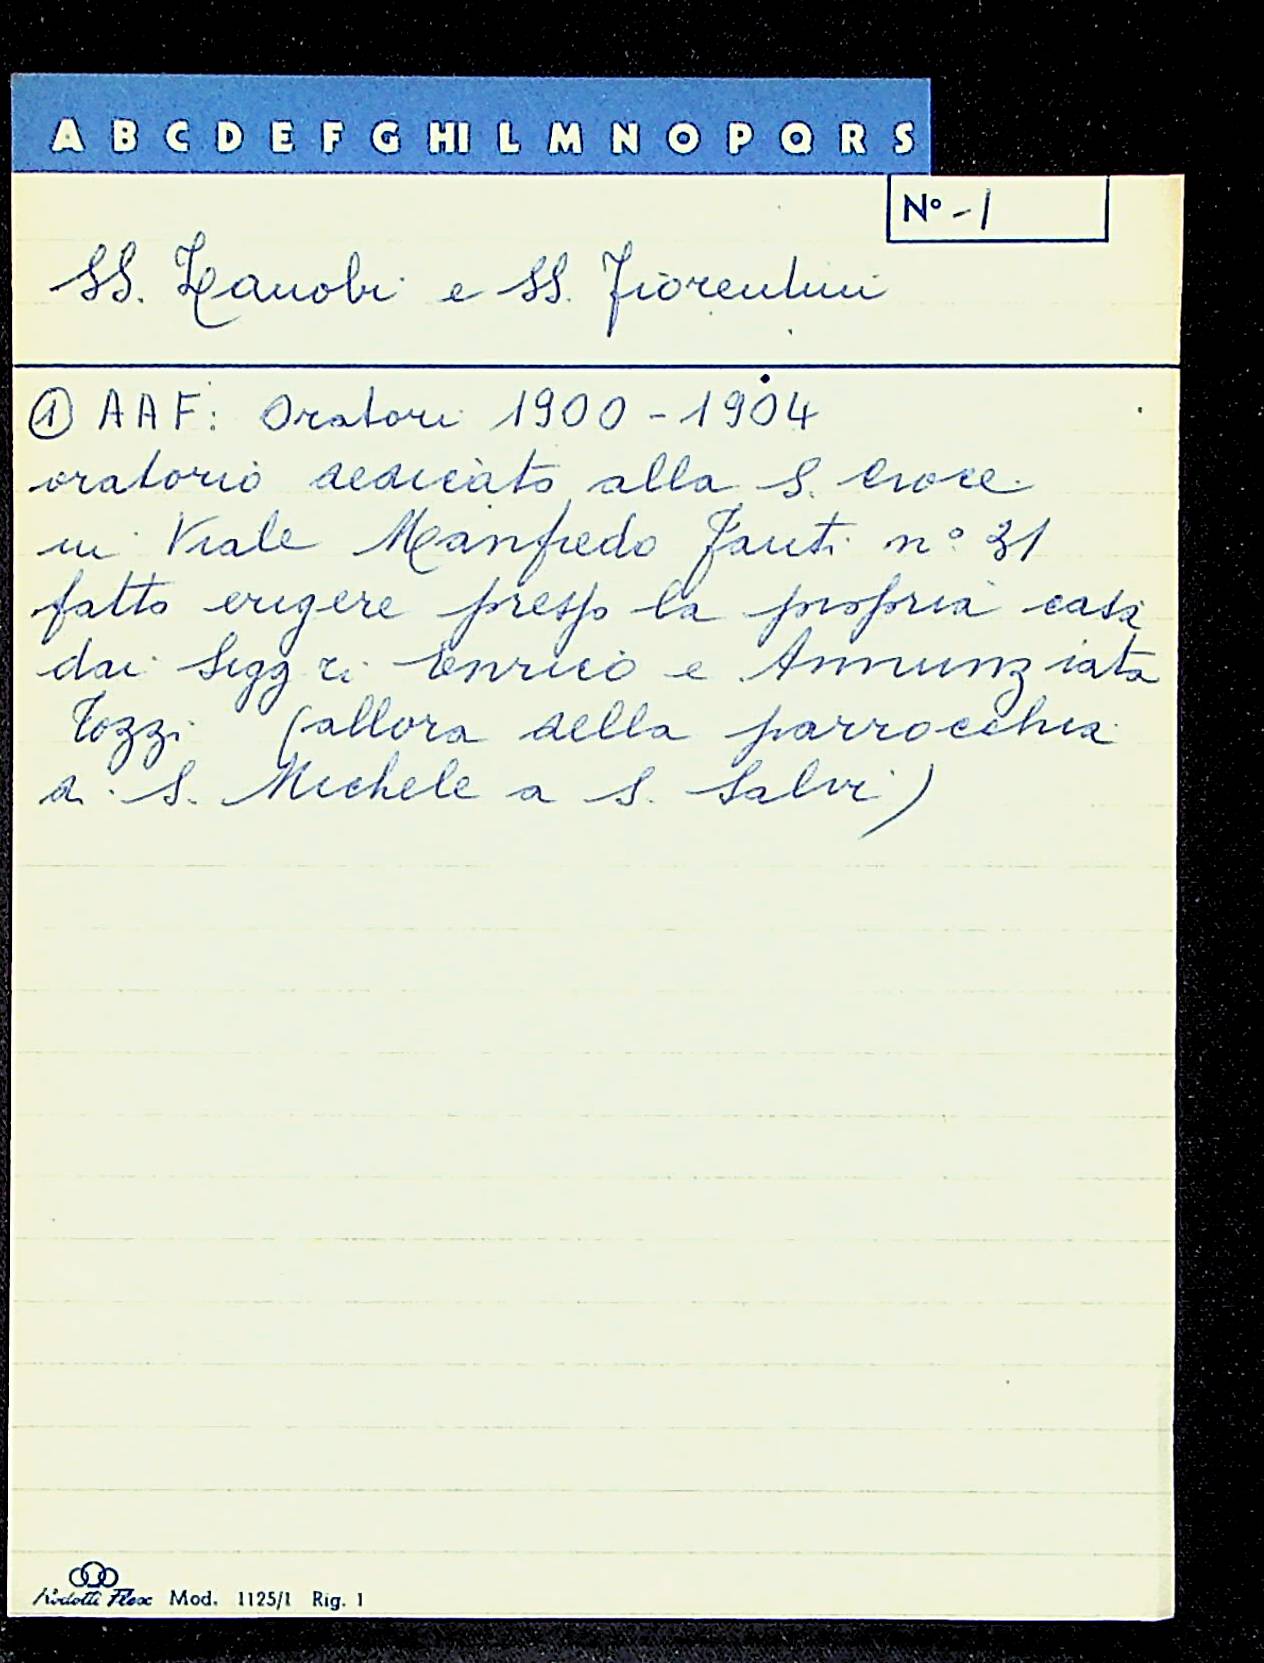 A B C D E F G HI L M N O P Q R S
N° -1
SS. Zanobi e SS. Fiorentini
① AAF: Oratori 1900-1904
oratorio dedicato alla S. Croce
in Viale Manfredo Fanti n° 31
fatto erigere presso la propria casa
dai Sigg.ri Enrico e Annunziata
Tozzi (allora della parrocchia
di S. Michele a S. Salvi)
Mod. 1125/1 Rig. 1